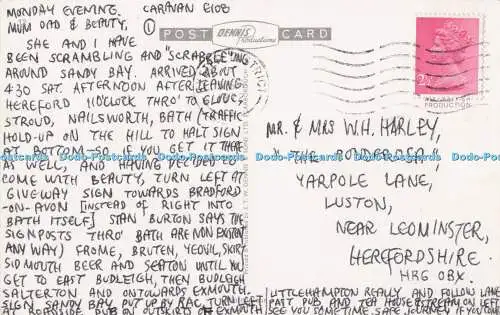 MONDAY EVENING. CARAVAN E108
MUM DAD & BEAUTY, ①
POST CARD
DENNIS
Productions
SHE AND I HAVE
BEEN SCRAMBLING AND "SCRABBLE"ING
AROUND SANDY BAY. ARRIVED ABOUT
4.30 SAT. AFTERNOON AFTER LEAVING
HEREFORD 11O'CLOCK THRO' TO GLOUC,
STROUD, NAILSWORTH, BATH (TRAFFIC
HOLD-UP ON THE HILL TO HALT SIGN
AT BOTTOM - SO IF YOU GET IT THERE
AS WELL, AND HAVING DECIDED TO
COME WITH BEAUTY, TURN LEFT AT
GIVEWAY SIGN TOWARDS BRADFORD
-ON-AVON [INSTEAD OF RIGHT INTO
BATH ITSELF] STAN BURTON SAYS THE
SIGNPOSTS THRO' BATH ARE NON EXISTANT
ANY WAY) FROME, BRUTEN, YEOVIL, SKIRT
SIDMOUTH BEER AND SEATON UNTIL YOU
GET TO EAST BUDLEIGH, THEN BUDLEIGH
SALTERTON AND ONTOWARDS EXMOUTH.
SIGN SANDY BAY PUT UP BY RAC, TURN LEFT
AT ROADSIDE PUB ON OUTSKIRTS OF EXMOUTH
LITTLEHAMPTON REALLY AND FOLLOW LANE
PAST PUB AND TEA HOUSE STREAM ON LEFT
SEE YOU SOME TIME. SAFE JOURNEY IF YOU
2½P
MR. & MRS W.H. HARLEY,
"THE PONDEROSA",
YARPOLE LANE,
LUSTON,
NEAR LEOMINSTER,
HEREFORDSHIRE.
HR6 0BX.
Dodo-Postcards Dodo-Postcards Dodo-Postcards Dodo-Postcards